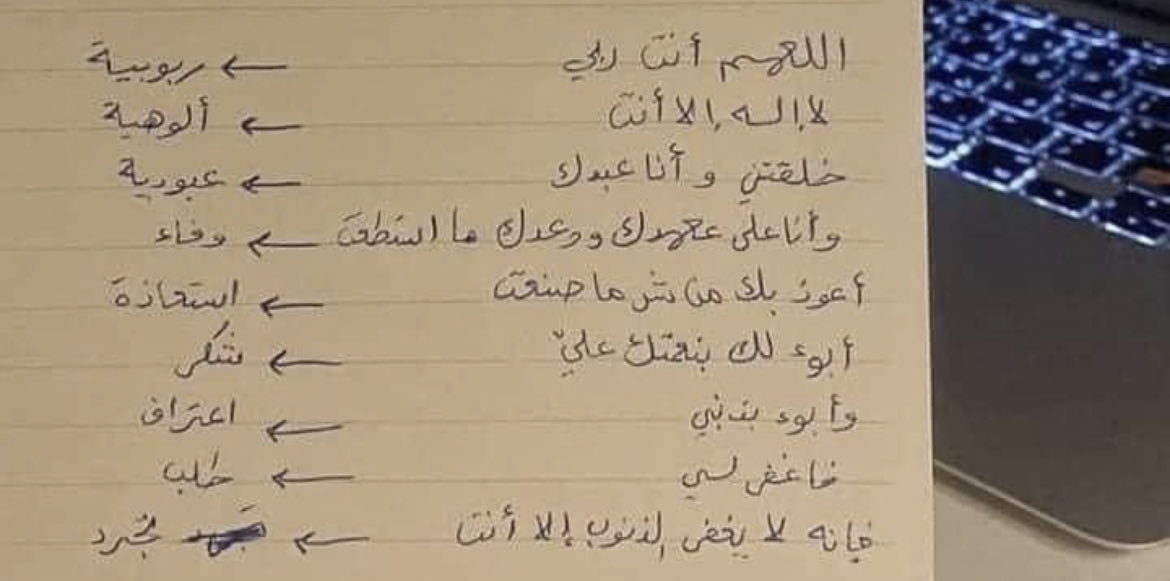 اللهم أنت ربي ← ربوبية
لا إله إلا أنت ← ألوهية
خلقتني و أنا عبدك ← عبودية
وأنا على عهدك ووعدك ما استطعت ← وفاء
أعوذ بك من شر ما صنعت ← استعاذة
أبوء لك بنعمتك عليّ ← شكر
وأبوء بذنبي ← اعتراف
فاغفر لي ← طلب
فإنه لا يغفر الذنوب إلا أنت ← تجرد